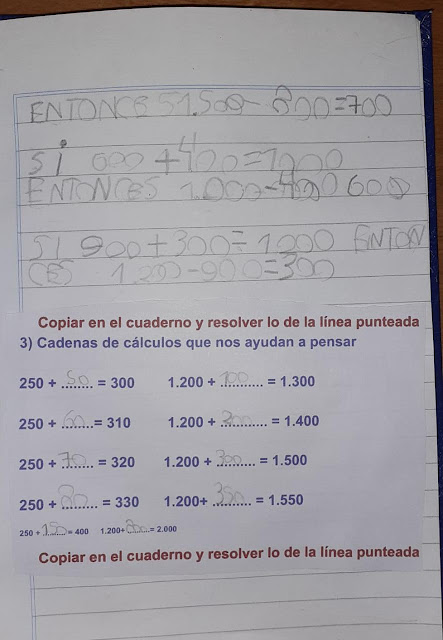 ENTONCE 51.500 - 800 = 700
SI 600 + 400 = 1000
ENTONCES 1.000 - 400 600
SI 900 + 300 = 1000 ENTON
CES 1.200 - 900 = 300
Copiar en el cuaderno y resolver lo de la línea punteada
3) Cadenas de cálculos que nos ayudan a pensar
250 + 50 = 300 1.200 + 100 = 1.300
250 + 60 = 310 1.200 + 200 = 1.400
250 + 70 = 320 1.200 + 300 = 1.500
250 + 80 = 330 1.200+ 350 = 1.550
250 + 150 = 400 1.200+ 800 = 2.000
Copiar en el cuaderno y resolver lo de la línea punteada